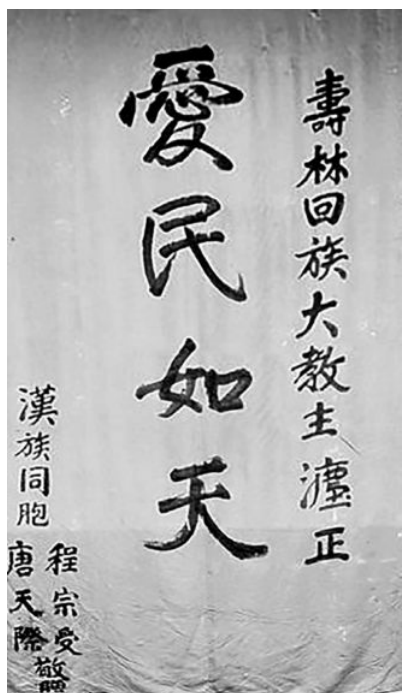 壽林回族大教主㳸正
愛民如天
漢族同胞
程宗受
唐天際
敬贈